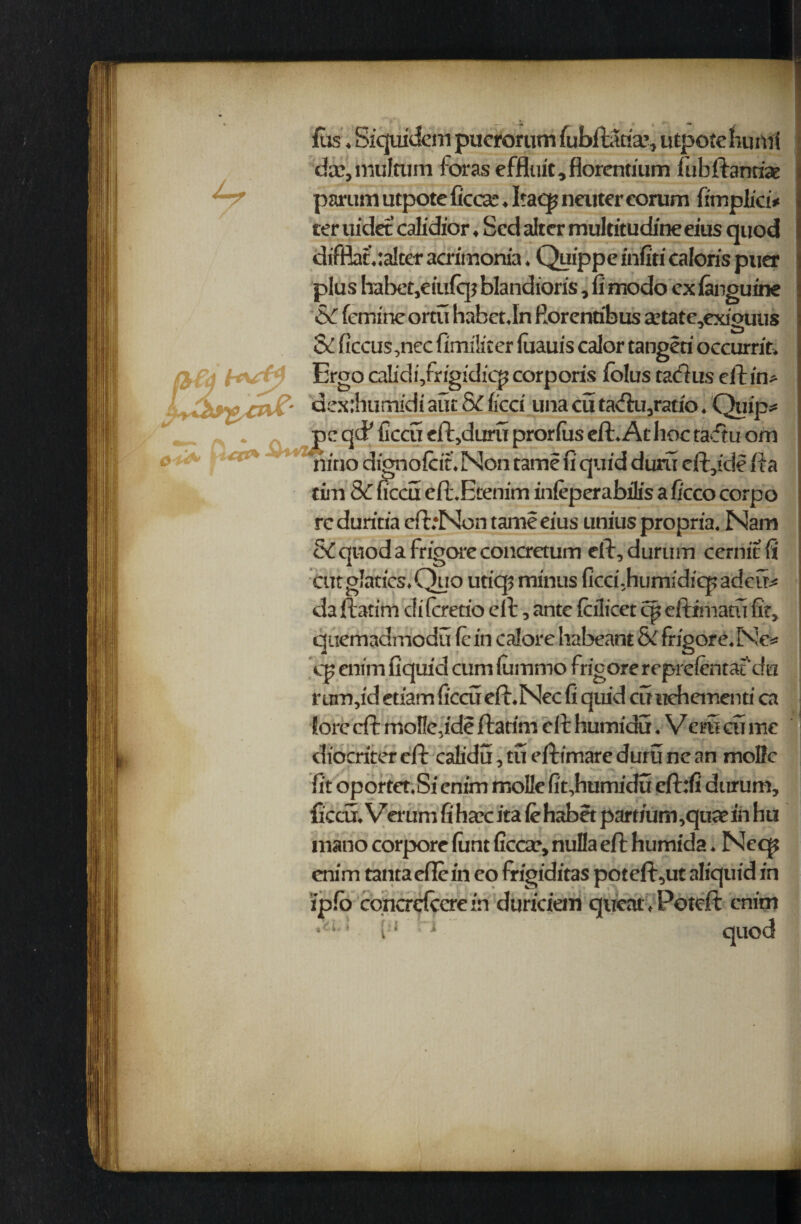 ſus. Siquidem puerorum ſubſtãtiæ, utpote humi
dæ, multum foras effluit, florentium ſubſtantiæ
parum utpote ſiccæ. Itaqꝫ neuter eorum ſimplici⸗
ter uidet̃ calidior. Sed alter multitudine eius quod
difflat̃.:alter acrimonia. Quippe inſiti caloris puer
plus habet,eiuſqꝫ blandioris, ſi modo ex ſanguine
& ſemine ortũ habet.In florentibus ætate,exiguus
& ſiccus,nec ſimiliter ſuauis calor tangẽti occurrit.
Ergo calidi,frigidiqꝫ corporis ſolus tactus eſt in⸗
dex:humidi aũt & ſicci una cũ tactu,ratio. Quip⸗
pe qđ ſiccũ eſt,durũ prorſus eſt.At hoc tactu om
nino dignoſcit̃.Non tamẽ ſi quid durũ eſt,idẽ ſta
tim & ſiccũ eſt.Etenim inſeperabilis a ſicco corpo
re duritia eſt:Non tamẽ eius unius propria. Nam
& quod a frigore concretum eſt, durum cernit̃ ſi
cut glacies.Quo utiqꝫ minus ſicci,humidiqꝫ adeũ⸗
da ſtatim diſcretio eſt, ante ſcilicet qꝫ eſtimatũ ſit,
quemadmodũ ſe in calore habeant & frigore.Ne⸗
qꝫ enim ſiquid cum ſummo frigore repreſentat̃ du
rum,id etiam ſiccũ eſt.Nec ſi quid cũ uehementi ca
lore eſt molle,idẽ ſtatim eſt humidũ. Verũ cũ me
diocriter eſt calidũ, tũ eſtimare durũ ne an molle
ſit oportet.Si enim molle ſit,humidũ eſt:ſi durum,
ſiccũ. Verum ſi hæc ita ſe habẽt partium,quæ in hu
mano corpore ſunt ſiccæ, nulla eſt humida. Neqꝫ
enim tanta eſſe in eo frigiditas poteſt,ut aliquid in
ipſo concreſcere in duriciem queat. Poteſt enim
quod